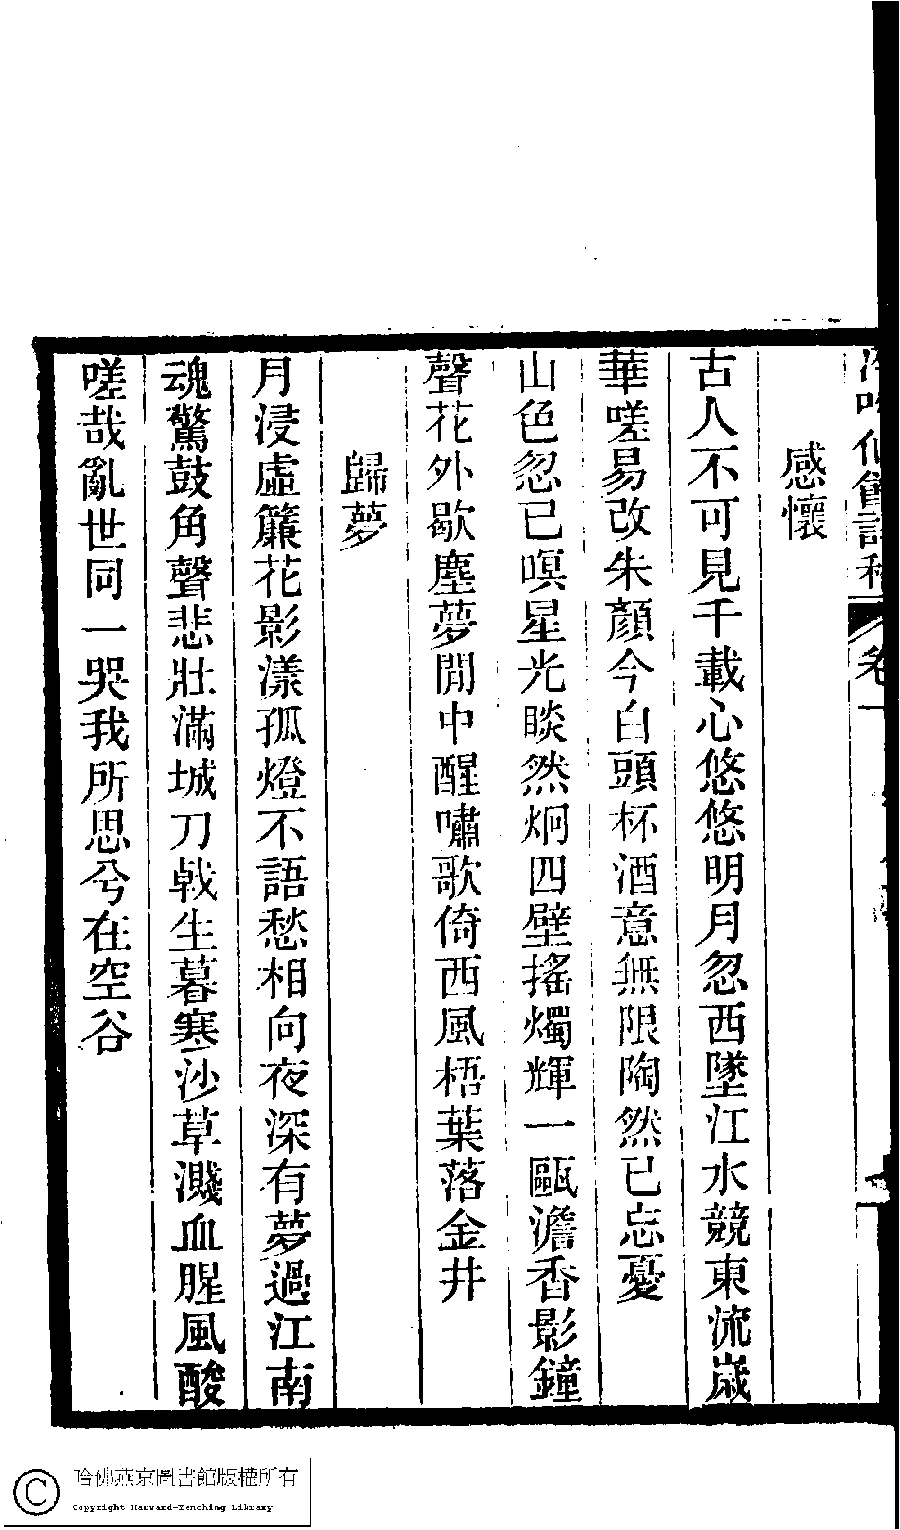 感懷
古人不可見千載心悠悠明月忽西墜江水競東流歲
華嗟易改朱顏今白頭杯酒意無限陶然已忘憂
山色忽已暝星光睒然炯四壁搖燭輝一甌澹香影鐘
聲花外歇塵夢閒中醒嘯歌倚西風梧葉落金井
歸夢
月浸虛簾花影漾孤燈不語愁相向夜深有夢過江南
魂驚鼓角聲悲壯滿城刀戟生暮寒沙草濺血腥風酸
嗟哉亂世同一哭我所思兮在空谷
哈佛燕京圖書館版權所有
Copyright Harvard-Yenching Library